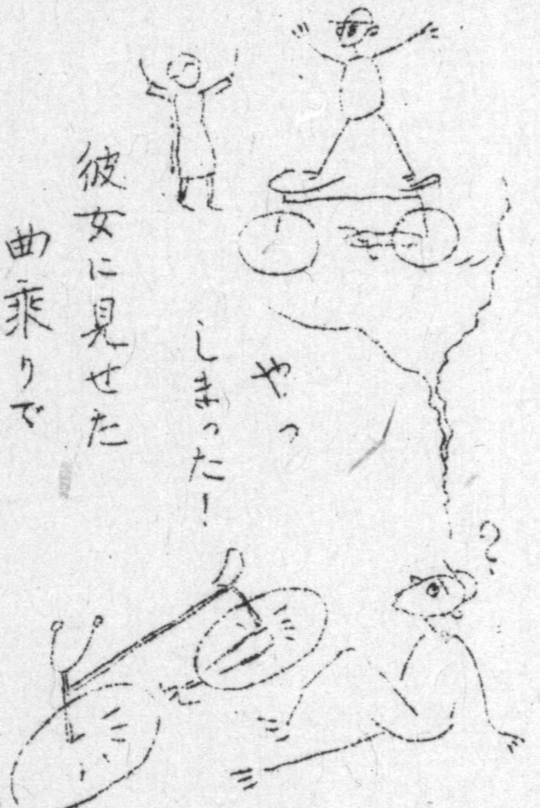 ?
やっ
しまった!
彼女に見せた
曲乗りで